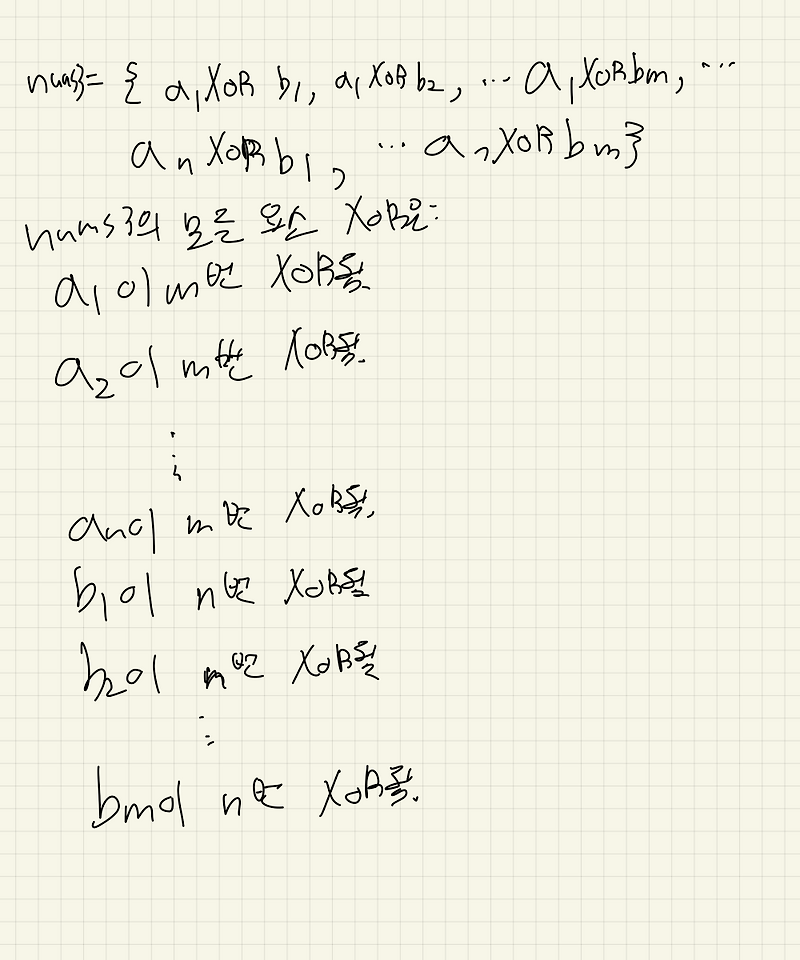 nums3= { a₁XOR b₁, a₁XOR b₂, ... a₁XORbm, ...
an XOR b₁, ... anXOR bm}
nums3의 모든 요소 XOR은:
a₁이 m번 XOR됨.
a₂이 m번 XOR됨.
⋮
an이 m번 XOR됨.
b₁이 n번 XOR됨
b₂이 n번 XOR됨
⋮
bm이 n번 XOR됨.